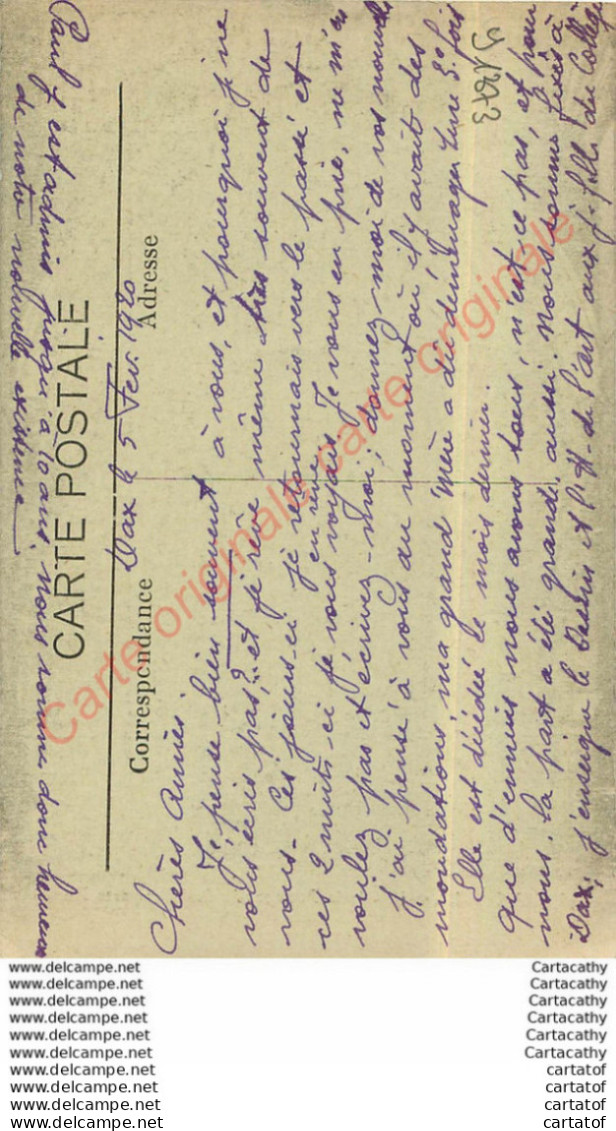 CARTE POSTALE
Correspondance
Adresse
Dax le 5 Fev. 1920
Chères Amies
Je pense bien souvent à vous, et pourquoi je ne
vous écris pas? et je rêve même très souvent de
vous - Ces jours-ci je retournais vers le passé et
ces 2 nuits-ci je vous voyais en rêve. Je vous en prie, ne m'en
voulez pas et écrivez-moi; donnez-moi de vos nouvelles
J'ai pensé à vous au moment où il y avait des
inondations, ma grand Mère a dû déménager une 3e fois
Elle est décédée le mois dernier.
que d'ennuis nous avons tous, n'est ce pas, et pour
nous, la part a été grande, aussi. Nous sommes fixés à
Dax; j'enseigne le Dessin et l'H. de l'art aux j. filles du Collège
Paul y est admis jusqu'à 10 ans, nous somme donc heureux
de notre nouvelle existence
91273
Carte originale carte originale
www.delcampe.net Cartacathy
www.delcampe.net Cartacathy
www.delcampe.net Cartacathy
www.delcampe.net Cartacathy
www.delcampe.net Cartacathy
www.delcampe.net Cartacathy
www.delcampe.net cartatof
www.delcampe.net cartatof
www.delcampe.net cartatof
www.delcampe.net cartatof